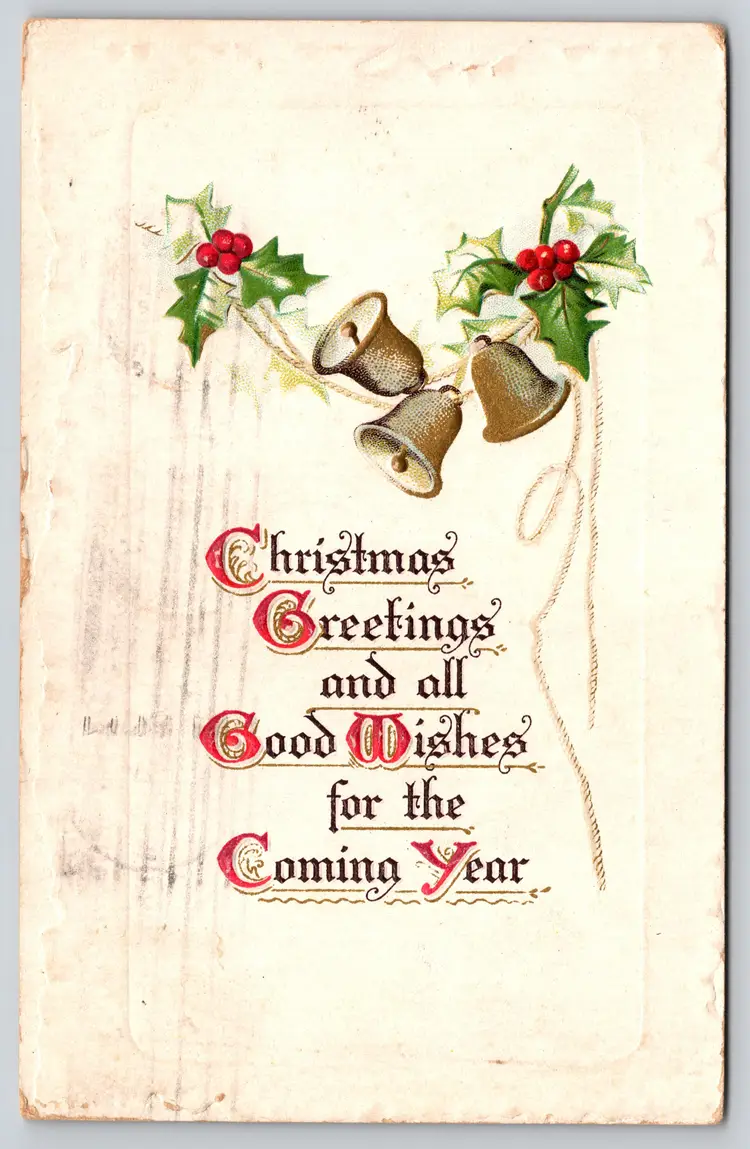 Christmas
Greetings
and all
Good Wishes
for the
Coming Year